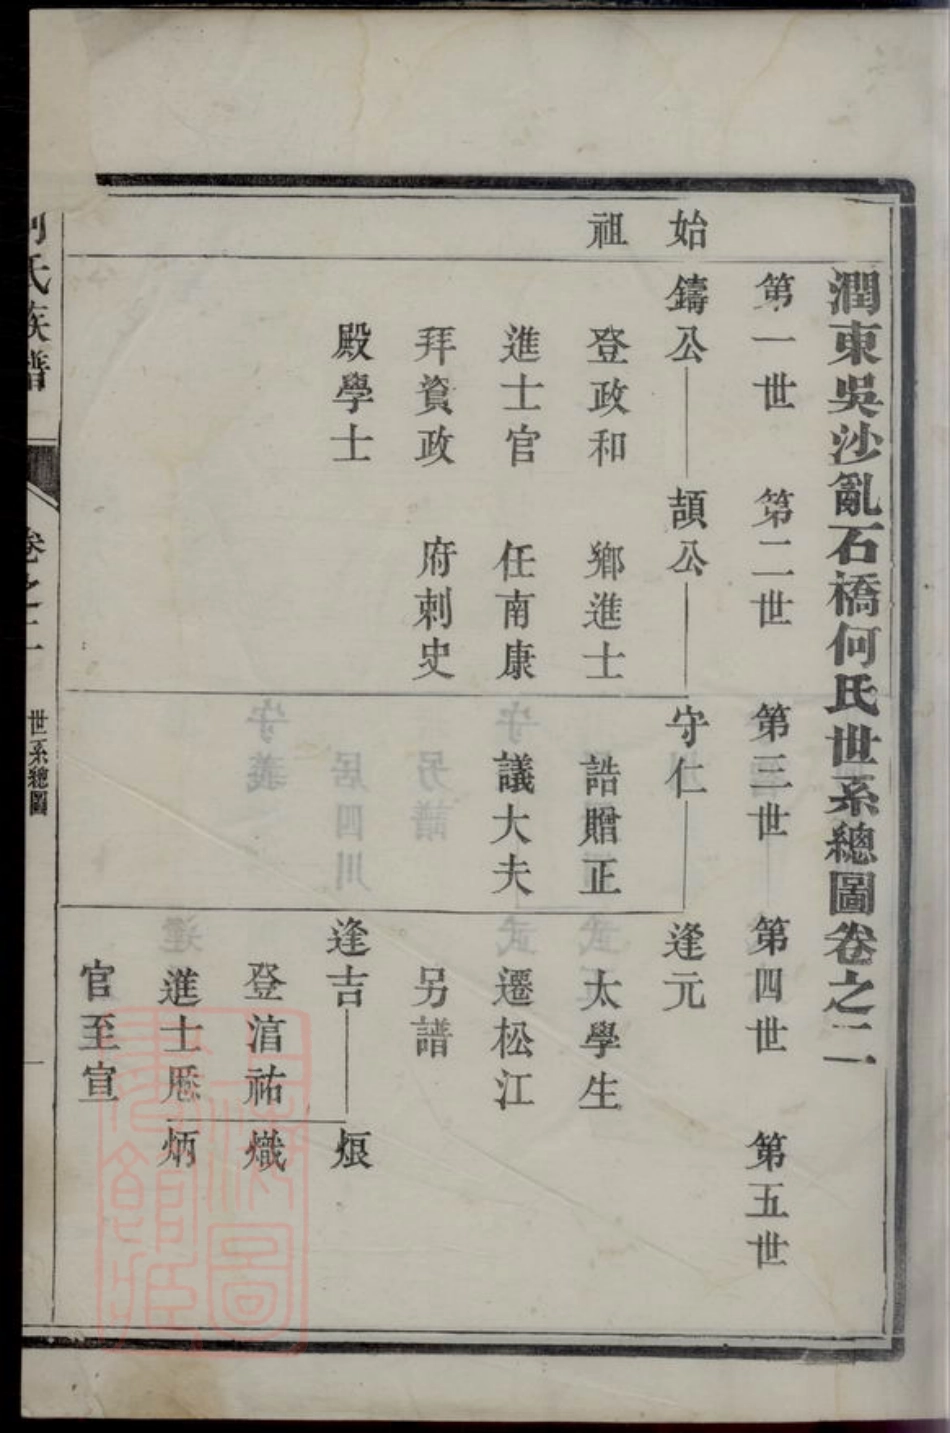 潤東吳沙亂石橋何氏世系總圖卷之二
第一世 第二世 第三世 第四世 第五世
始祖
鑄公
登政和
進士官
拜資政
殿學士
頡公
鄉進士
任南康
府刺史
守仁
誥贈正
議大夫
逢元
太學生
遷松江
另譜
逢吉
登淯祐
進士歷
官至宣
烺
熾
炳
何氏族譜
卷之二
世系總圖